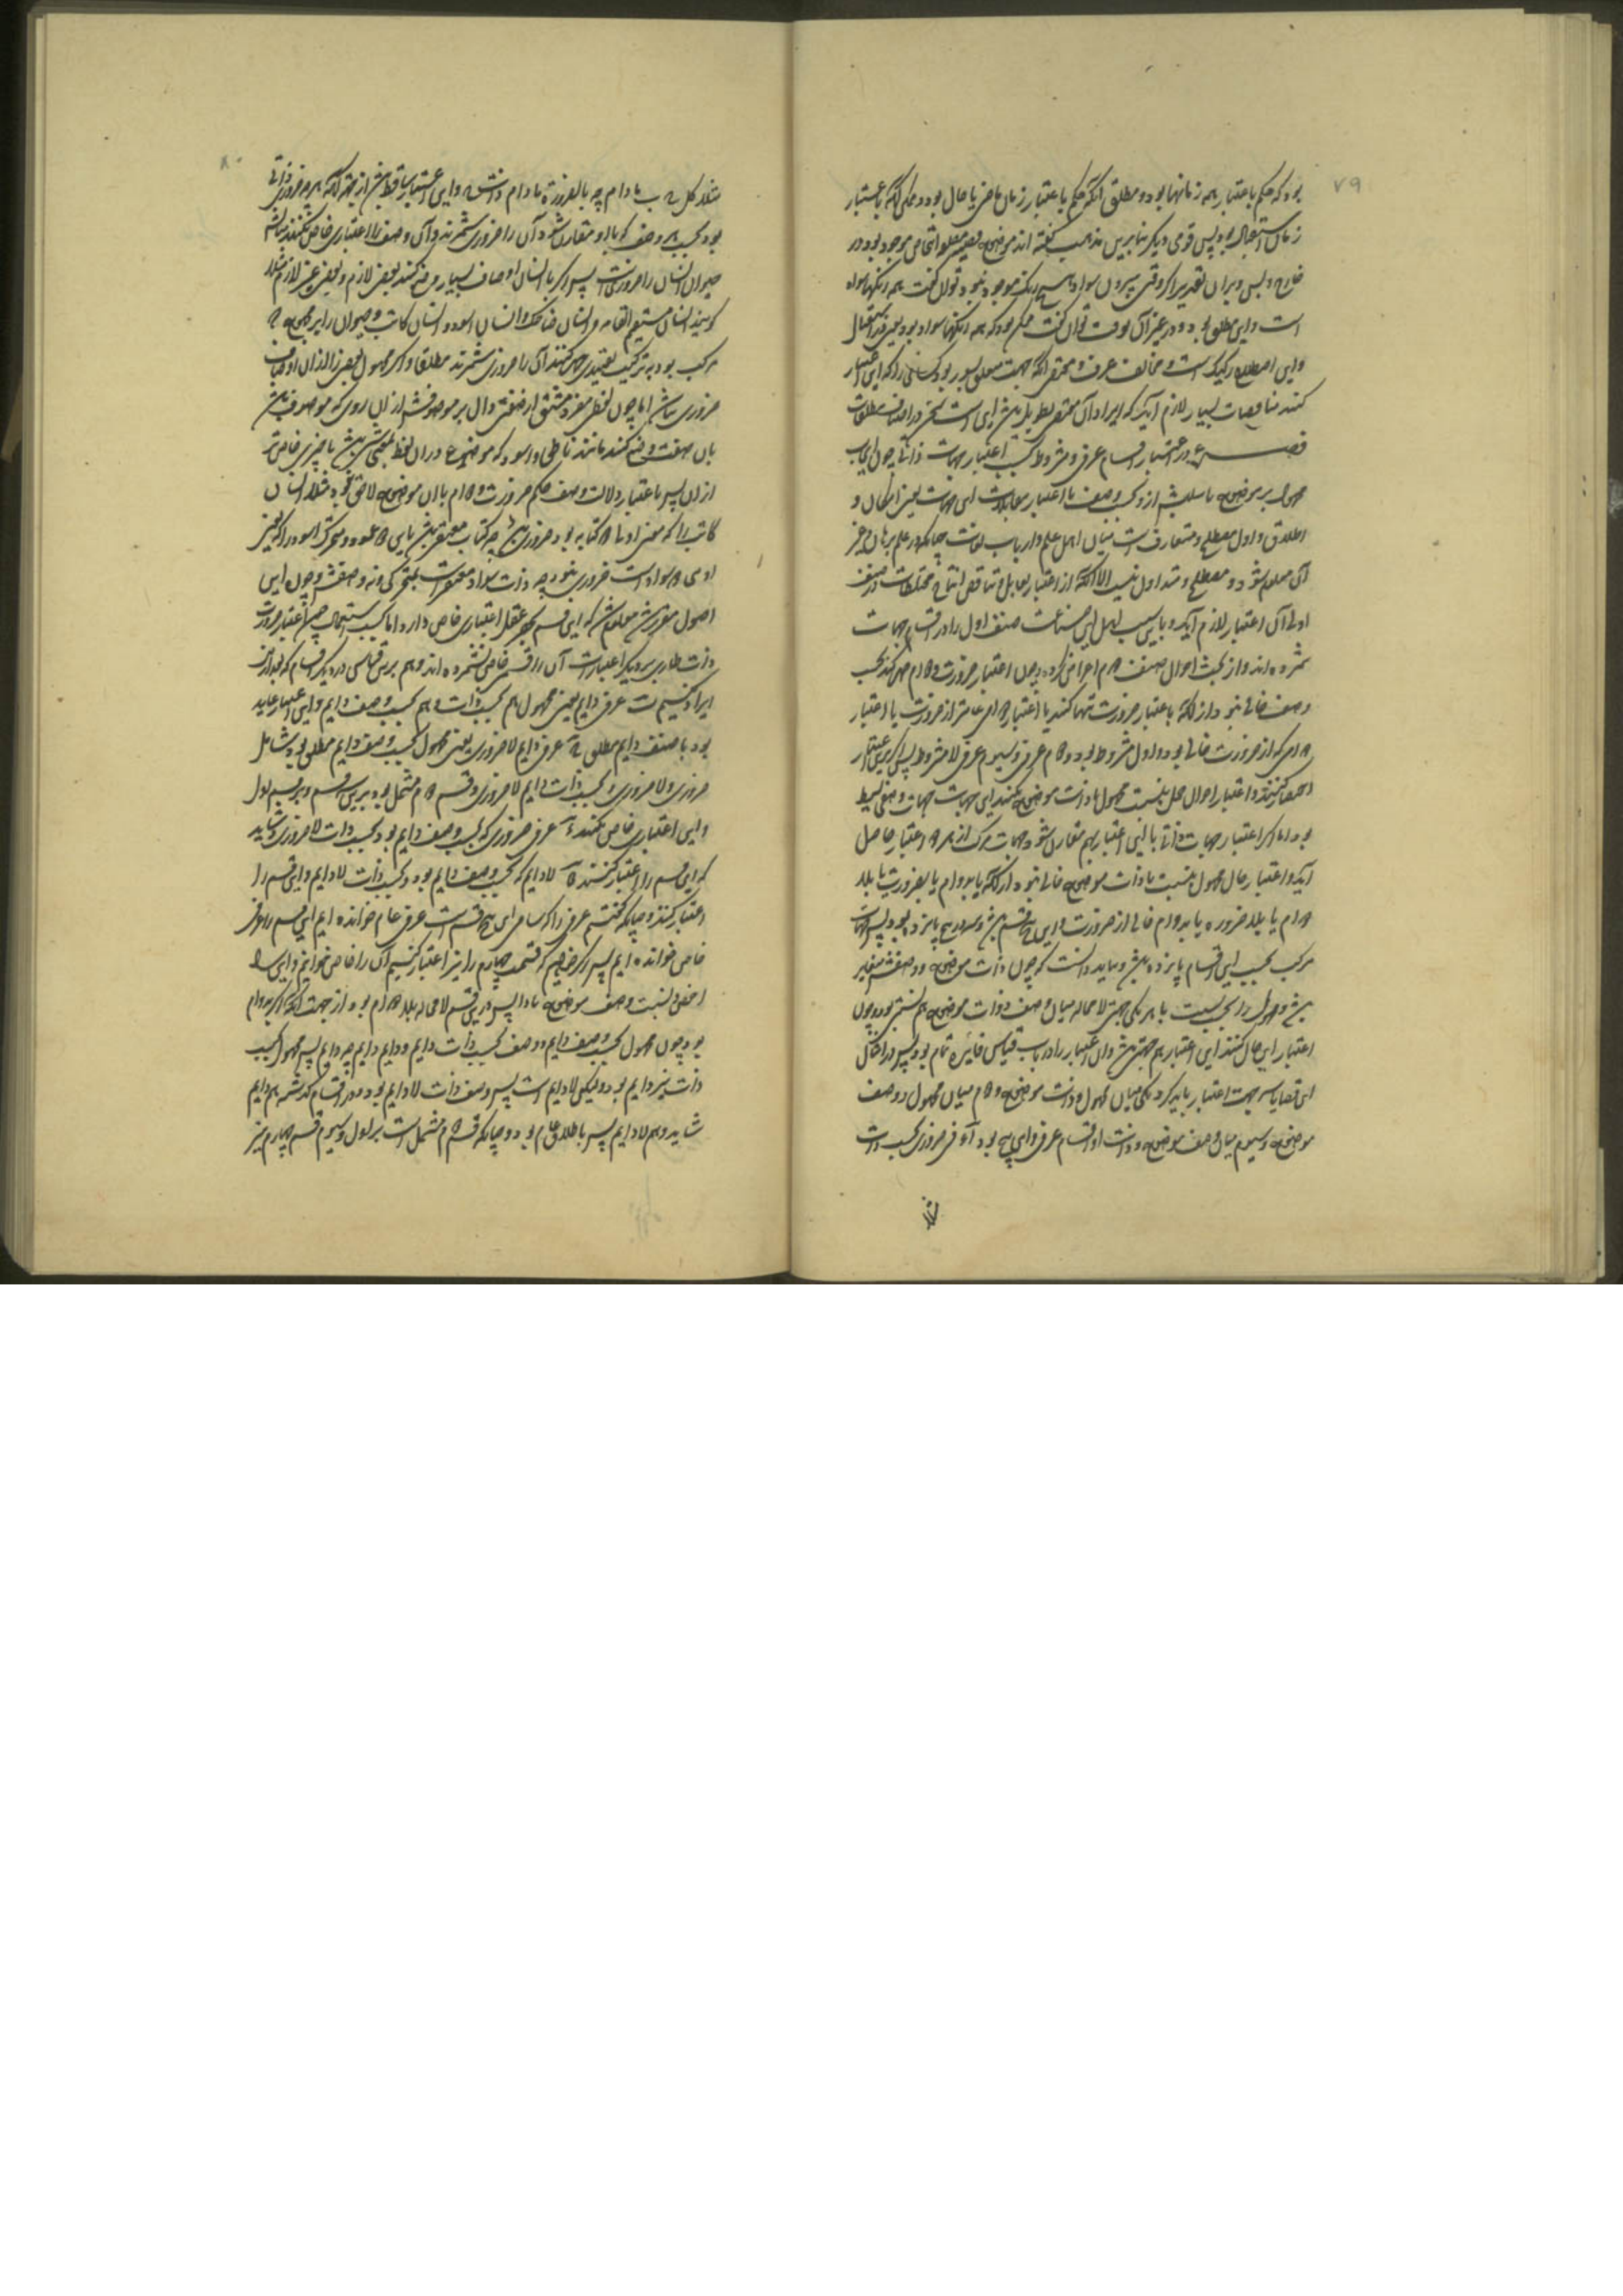 ۷۹
بود که حکم باعتبار همه زمانها بود و مطلق آنکه حکم باعتبار زمان ماضی یا حال بود و ممکن آنکه باعتبار
زمان استقبال بود پس قومی دیگر بنا برین مذهب گفته اند موضوع قضیه اشخاص موجود بود در
خارج و بس و بران تقدیر اگر وقتی بیرون سواد هیچ رنگ موجود نبود توان گفت همه رنگها سواد
است و این مطلق بود و در غیر آن وقت توان گفت ممکن بود که همه رنگها سواد بود یعنی در استقبال
و این اصطلاح رکیک است و مخالف عرف و مقتضی آنکه جهت متعلق بسور بود و کسانی را که این اعتبار
کنند مناقضات بسیار لازم آید که ایراد آن مقتضی تطویل باشد این است سخن در اصناف مطلقات
فصل در اعتبار اقسام عرفی و مشروط بحسب اعتبار جهات ذاتی چون ایجاب
محمول بر موضوع یا سلبش ازو بحسب وصف با اعتبار مقابلات این جهات یعنی امکان و
اطلاق و اول مصطلح و متعارف است میان اهل علم و ارباب لغات چنانکه در علم برهان و غیر
آن معلوم شود و مصطلح و متداول نیست الا آنکه از اعتبار تقابل و تناقض انتاج مختلطات در صنف
اول آن اعتبار لازم آید و باین سبب اهل این صناعت صنف اول را در اقسام جهات
شمرده اند و از بحث احوال صنف دوم اعراض کرده و چون اعتبار ضرورت و دوام هم کند بحسب
وصف خالی نبود از آنکه یا اعتبار ضرورت تنها کنند یا اعتبار دوامی عامتر از ضرورت یا اعتبار
دوامی که از ضرورت خالی بود و اول مشروط بود و دوم عرفی و سیوم عرفی لامشروط پس اگر برین اعتبار
اقتصار کنند و اعتبار احوال حمل بنسبت محمول با ذات موضوع نکنند این جهات جهات وصفی بسیط
بود اما اگر اعتبار جهات ذاتی با این اعتبار بهم مقارن شود جهات مرکب از هر دو اعتبار حاصل
آید و اعتبار حال محمول بنسبت با ذات موضوع خالی نبود از آنکه یا بدوام یا بضرورت یا بلا
دوام یا بلا ضرورة یا بدوام خالی از ضرورت و این پنج قسم باشد و سه در پنج پانزده بود پس جهات
مرکب بحسب این اقسام پانزده باشد و بباید دانست که چون ذات موضوع و وصفش متغایر
باشد و محمول را بحسب نسبت با هر یکی جهتی لامحاله میان وصف و ذات موضوع هم نسبتی بود و چون
اعتبار این حال کنند این اعتبار هم جهتی باشد و این اعتبار را در باب قیاس فایده تمام بود پس در امثال
این قضایا سه جهت اعتبار باید کرد یکی میان محمول و ذات موضوع و دوم میان محمول و وصف
موضوع و سیوم میان وصف موضوع و ذات او اقسام عرفی و این پنج بود آ عرفی ضروری بحسب ذات
مثلا
۸۰
مثلا کل ج ب مادام ج بالضرورة مادام ذاتش ج و این اعتبار ساقط باشد از جهت آنکه هر چه ضروری ذاتی
بود بحسب هر وصف که با او مقارن شود آن را ضروری شمرند و آن وصف را اعتباری خاص نکنند مثلا
حیوان انسان را ضروریست پس اگر با انسان اوصاف بسیار وضع کنند بعضی لازم و بعضی غیر لازم مثلا
گویند انسان مستقیم القامه و انسان ضاحک و انسان اسود و انسان کاتب و حیوان را بر مجموع که
مرکب بود بترکیب تقییدی حمل کنند آن را ضروری شمرند مطلقا و اگر محمول بعضی را از آن اوصاف
ضروری نباشد اما چون لفظی مفرد مشتق از صفتی دال بر موصوفش از آن روی که موصوف باشد
بان صفت وضع کنند مانند ناطق و اسود که موضوع در ان لفظ بمعنی شی باشد یا چیزی خاص تر
از ان پس باعتبار دلالت وصف حکم ضرورت و دوام با ان موضوع لاحق نبود مثلا انسان
کاتب را که معنی او ما ذو کتابه بود ضروری باشد چه کتابت مقتضی باشد باین دو عمود و متحرک اسود را که یعنی
او شی ذو سواد است ضروری نبود چه ذات سواد مقتضی است بتحرک نه وصفش و چون این
اصول مقرر شد معلوم شد که این قسم بحسب عقل اعتباری خاص دارد اما بحسب استعمال چون اعتبار ضرورت
ذات طاری بر دیگر اعتبارات آن را قسمی خاص نشمرده اند و هم برین قیاس در دیگر اقسام که بعد ازین
ایراد کنیم ب عرفی دایم یعنی محمول هم بحسب ذات و هم بحسب وصف دایم و این اعتبار عاید
بود با صنف دایم مطلق ج عرفی دایم لا ضروری یعنی محمول بحسب وصف دایم مطلق بود شامل
ضروری و لا ضروری و بحسب ذات دایم لا ضروری و قسم دوم مشتمل بود برین قسم و بر قسم اول
و این اعتباری خاص نکنند د عرفی ضروری که بحسب وصف دایم بود و بحسب ذات لا ضروری و شاید
که این قسم را اعتبار کنند ه لادایم که بحسب وصف دایم بود و بحسب ذات لادایم و این قسم را
اعتبار کنند و چنانکه گفتیم عرفی را که شامل این پنج قسم است عرفی عام خوانده ایم این قسم را عرفی
خاص خوانده ایم پس اگر خواهیم که قسمت چهارم را نیز اعتبار کنیم آن را خاص خوانیم و این را
اخص و نسبت وصف موضوع با ذات پس درین قسم لامحاله بلا دوام بود از جهت آنکه اگر بدوام
بود چون محمول بحسب وصف دایم و وصف بحسب ذات دایم و دایم دایم چه دایم پس محمول بحسب
ذات نیز دایم بود و لیکن لادایم است پس وصف ذات لادایم بود و در اقسام گذشته هم دایم
شاید و هم لادایم پس باطلاق عام بود و چنانکه قسم دوم مشتمل است بر اول و سیوم قسم چهارم نیز